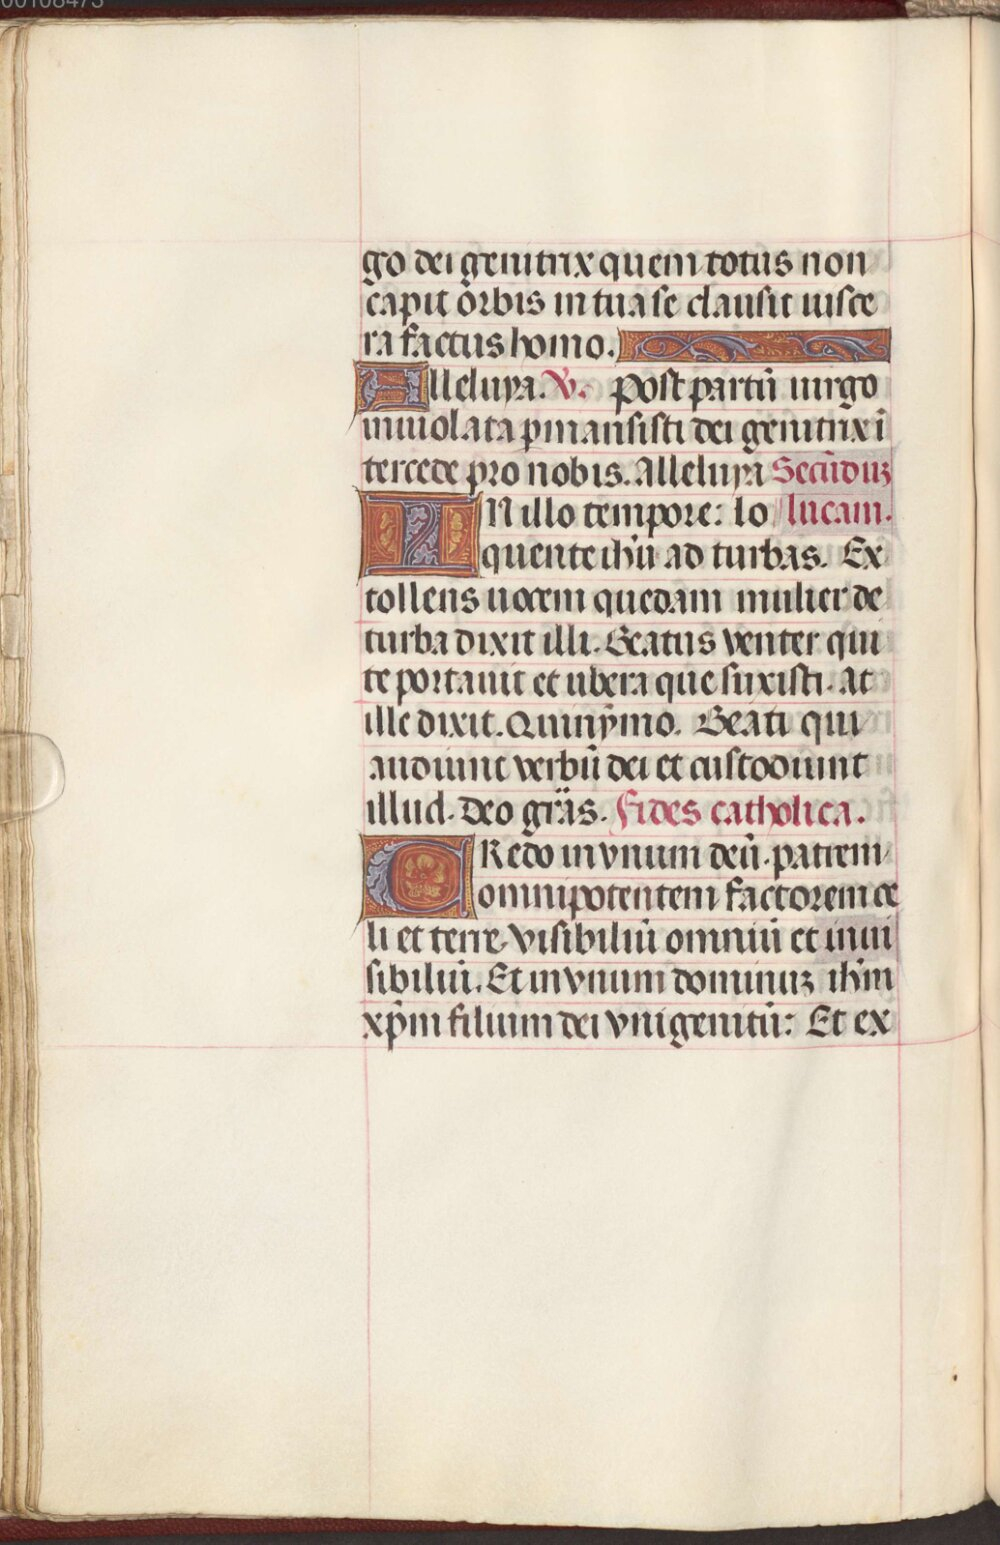 00108473
go dei genitrix quem totus non
capit orbis in tua se clausit uisce
ra factus homo.
Alleluya. V. Post partū uirgo
inuiolata pmansisti dei genitrix ī
tercede pro nobis. Alleluya Secūduʒ
IN illo tempore: lo lucam.
quente ihū ad turbas. Ex
tollens uocem quedam mulier de
turba dixit illi. Beatus venter qui
te portauit et ubera que suxisti. at
ille dixit. Quinÿmo. Beati qui
audiunt verbū dei et custodiunt
illud. Deo grās. Fides catholica.
CRedo in vnum deū. patrem
omnipotentem factorem ce
li et terre. visibiliū omniū et inui
sibiliū. Et in vnum dominuʒ ihm̄
xp̄m filium dei vnigenitū: Et ex